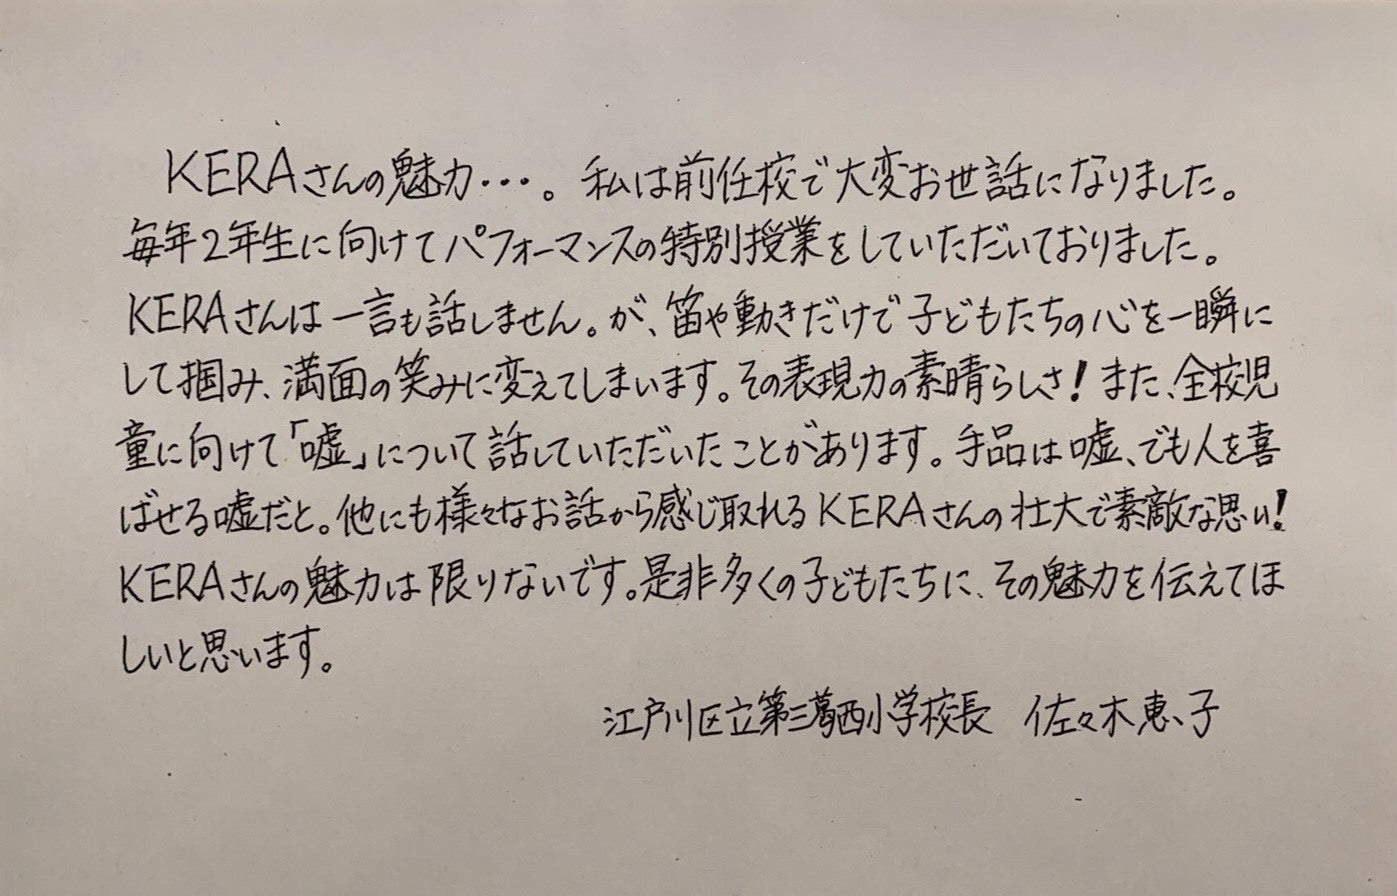 KERAさんの魅力・・・。私は前任校で大変お世話になりました。
毎年2年生に向けてパフォーマンスの特別授業をしていただいておりました。
KERAさんは一言も話しません。が、笛や動きだけで子どもたちの心を一瞬に
して掴み、満面の笑みに変えてしまいます。その表現力の素晴らしさ!また、全校児
童に向けて「嘘」について話していただいたことがあります。手品は嘘、でも人を喜
ばせる嘘だと。他にも様々なお話から感じ取れるKERAさんの壮大で素敵な思い!
KERAさんの魅力は限りないです。是非多くの子どもたちに、その魅力を伝えてほ
しいと思います。
江戸川区立第三葛西小学校長 佐々木恵子